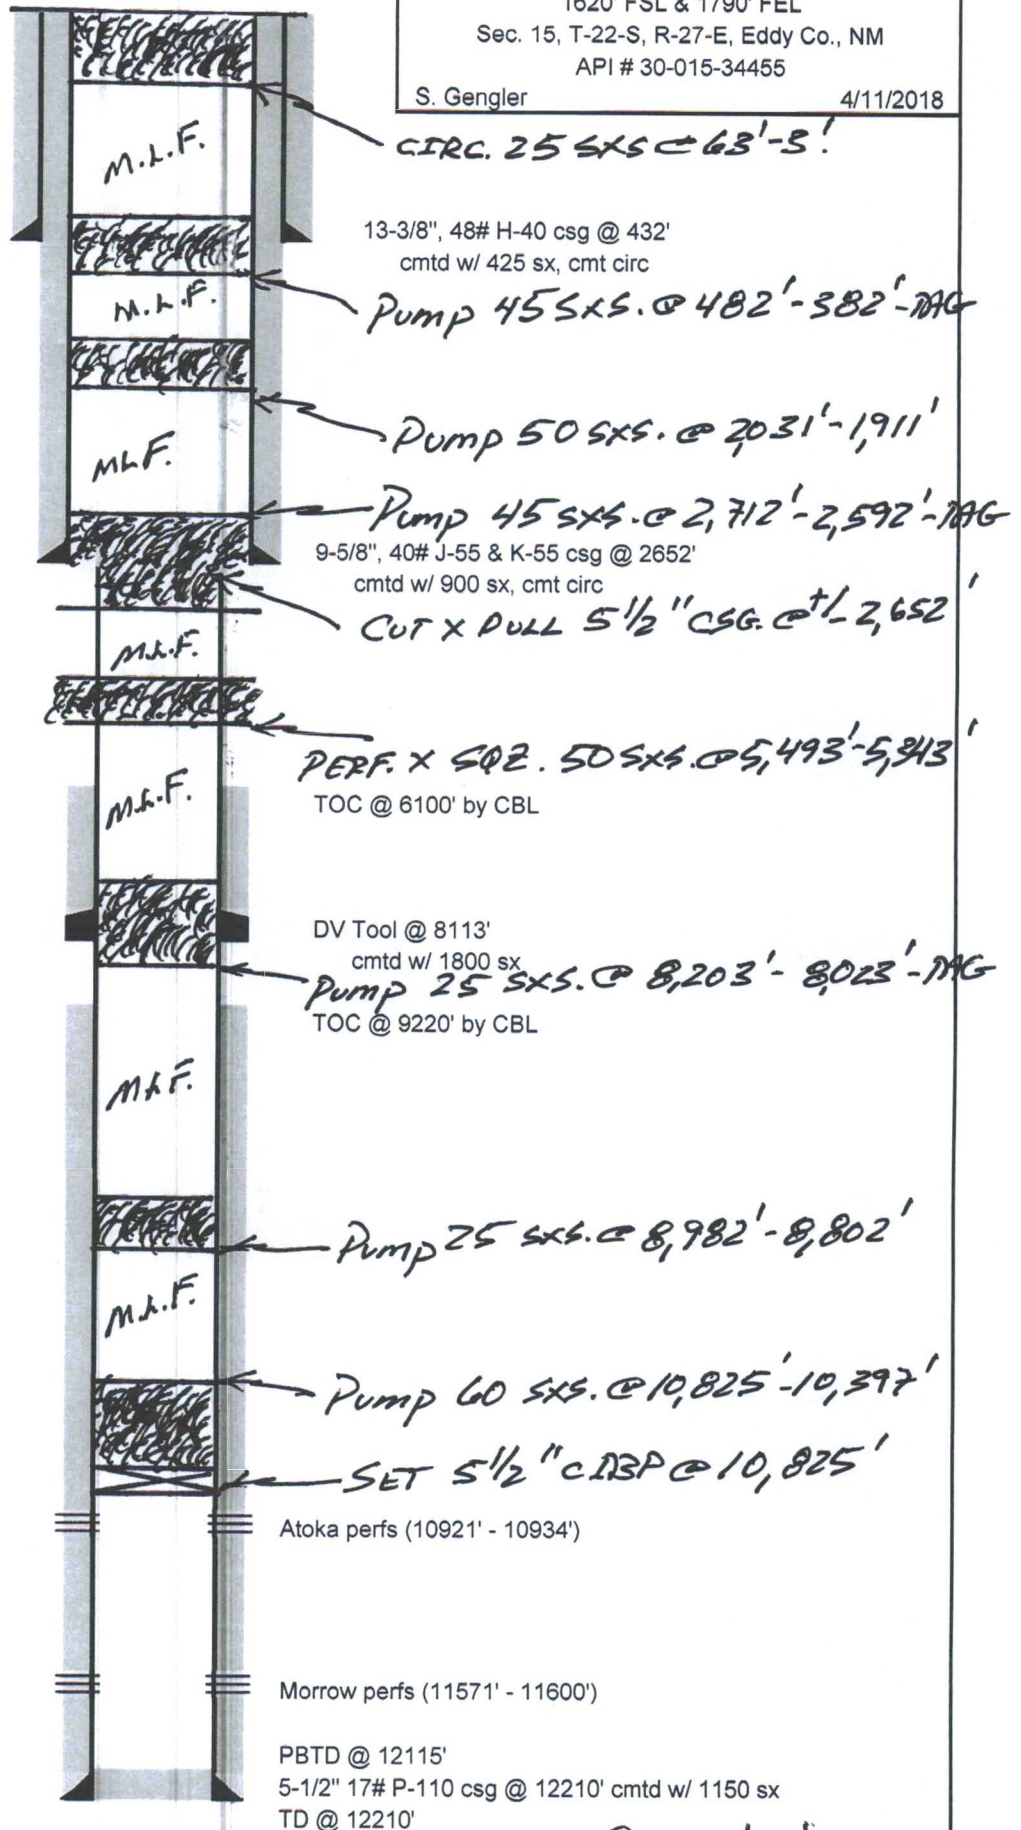 1620' FSL & 1790' FEL
Sec. 15, T-22-S, R-27-E, Eddy Co., NM
API # 30-015-34455
S. Gengler 4/11/2018
CIRC. 25 SXS @ 63'-3'
M.L.F.
13-3/8", 48# H-40 csg @ 432'
cmtd w/ 425 sx, cmt circ
M.L.F.
Pump 45 SXS. @ 482'-382'-TAG
Pump 50 SXS. @ 2,031'-1,911'
MLF.
Pump 45 SXS. @ 2,712'-2,592'-TAG
9-5/8", 40# J-55 & K-55 csg @ 2652'
cmtd w/ 900 sx, cmt circ
CUT X PULL 5 1/2" CSG. @ +/- 2,652'
M.L.F.
PERF. X SQZ. 50 SXS. @ 5,493'-5,343'
M.L.F.
TOC @ 6100' by CBL
DV Tool @ 8113'
cmtd w/ 1800 sx
Pump 25 SXS. @ 8,203'-8,023'-TAG
TOC @ 9220' by CBL
MLF.
Pump 25 SXS. @ 8,982'-8,802'
M.L.F.
Pump 60 SXS. @ 10,825'-10,397'
SET 5 1/2" CIBP @ 10,825'
Atoka perfs (10921' - 10934')
Morrow perfs (11571' - 11600')
PBTD @ 12115'
5-1/2" 17# P-110 csg @ 12210' cmtd w/ 1150 sx
TD @ 12210'